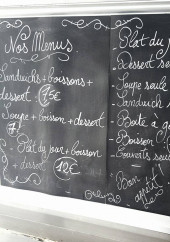 Nos Menus
Sandwichs + boissons +
dessert
Soupe + boisson + dessert
Plat du jour + boisson
+ dessert 12€
Plat du
Dessert
Soupe seule
Sandwich
Boite à
Boisson
Couverts
Bon appétit